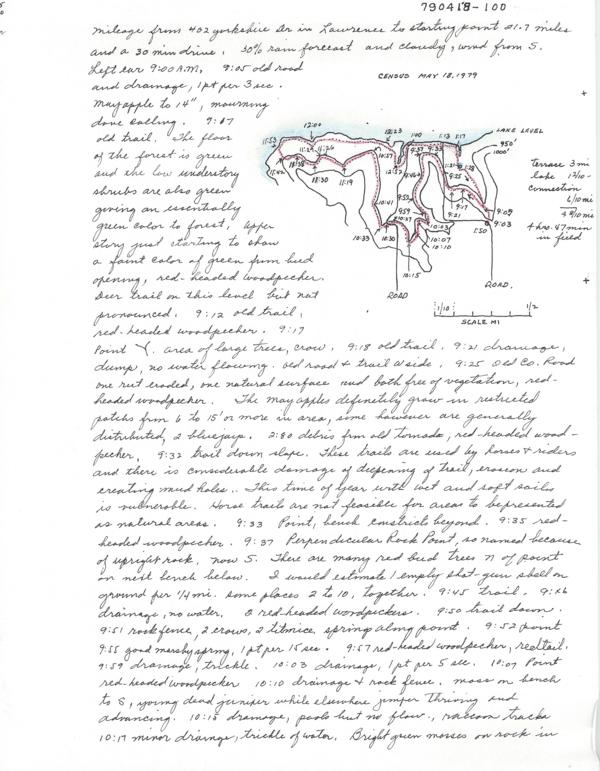 790418-100
mileage from 402 yorkshire Dr in Lawrence to starting point 21.7 miles
and a 30 min drive. 30% rain forecast and cloudy, wind from S.
Left car 9:00 A.M. 9:05 old road
and drainage, 1 pt per 3 sec.
Mayapple to 14", mourning
dove calling. 9:07
old trail. The floor
of the forest is green
and the low understory
shrubs are also green
giving an essentially
green color to forest, upper
story just starting to show
a faint color of green from bud
opening, red-headed woodpecker.
Deer trail on this level but not
pronounced. 9:12 old trail,
red-headed woodpecker. 9:17
Point Y. area of large trees, crow. 9:18 old trail. 9:21 drainage,
dump, no water flowing. old road + trail W side. 9:25 Old Co. Road
one rut eroded, one natural surface and both free of vegetation, red-
headed woodpecker. The may apples definitely grow in restricted
patches from 6 to 15' or more in area, some however are generally
distributed, 2 bluejays. 2:30 debris from old tornado, red-headed wood-
pecker. 9:32 trail down slope. These trails are used by horses + riders
and there is considerable damage of deepening of trail, erosion and
creating mud holes. This time of year with wet and soft soils
is vulnerable. Horse trails are not feasible for areas to be presented
as natural areas. 9:33 Point, bench constricts beyond. 9:35 red-
headed woodpecker. 9:37 Perpendicular Rock Point, so named because
of upright rock, now S. There are many red bud trees N of point
on next bench below. I would estimate 1 empty shot-gun shell on
ground per 1/4 mi. some places 2 to 10, together. 9:45 trail. 9:46
drainage, no water. 2 red-headed woodpeckers. 9:50 trail down.
9:51 rock fence, 2 crows, 2 titmice, springs along point. 9:52 point
9:55 good marshy spring, 1 pt per 15 sec. 9:57 red-headed woodpecker, redtail.
9:59 drainage, trickle. 10:03 drainage, 1 pt per 5 sec. 10:07 Point
red-headed woodpecker 10:10 drainage + rock fence. moss on bench
to S, young dead juniper while elsewhere juniper thriving and
advancing. 10:15 drainage, pools but no flow, raccoon tracks
10:17 minor drainage, trickle of water. Bright green mosses on rock in
CENSUS MAY 18, 1979
LAKE LEVEL
950'
1000'
12:00
11:53
12:23
1:00
1:13
1:17
11:42
11:29
11:26
10:30
11:19
10:57
12:37
9:37
9:33
9:25
9:17
9:21
9:09
9:03
1:50
10:41
9:52
9:59
10:33
10:30
10:03
10:07
10:10
10:15
ROAD
ROAD.
terrace 3 mi
lake 1 7/10 -
connection
6/10 mi
4 hrs. 47 min
in field
1/10
1/2
SCALE MI